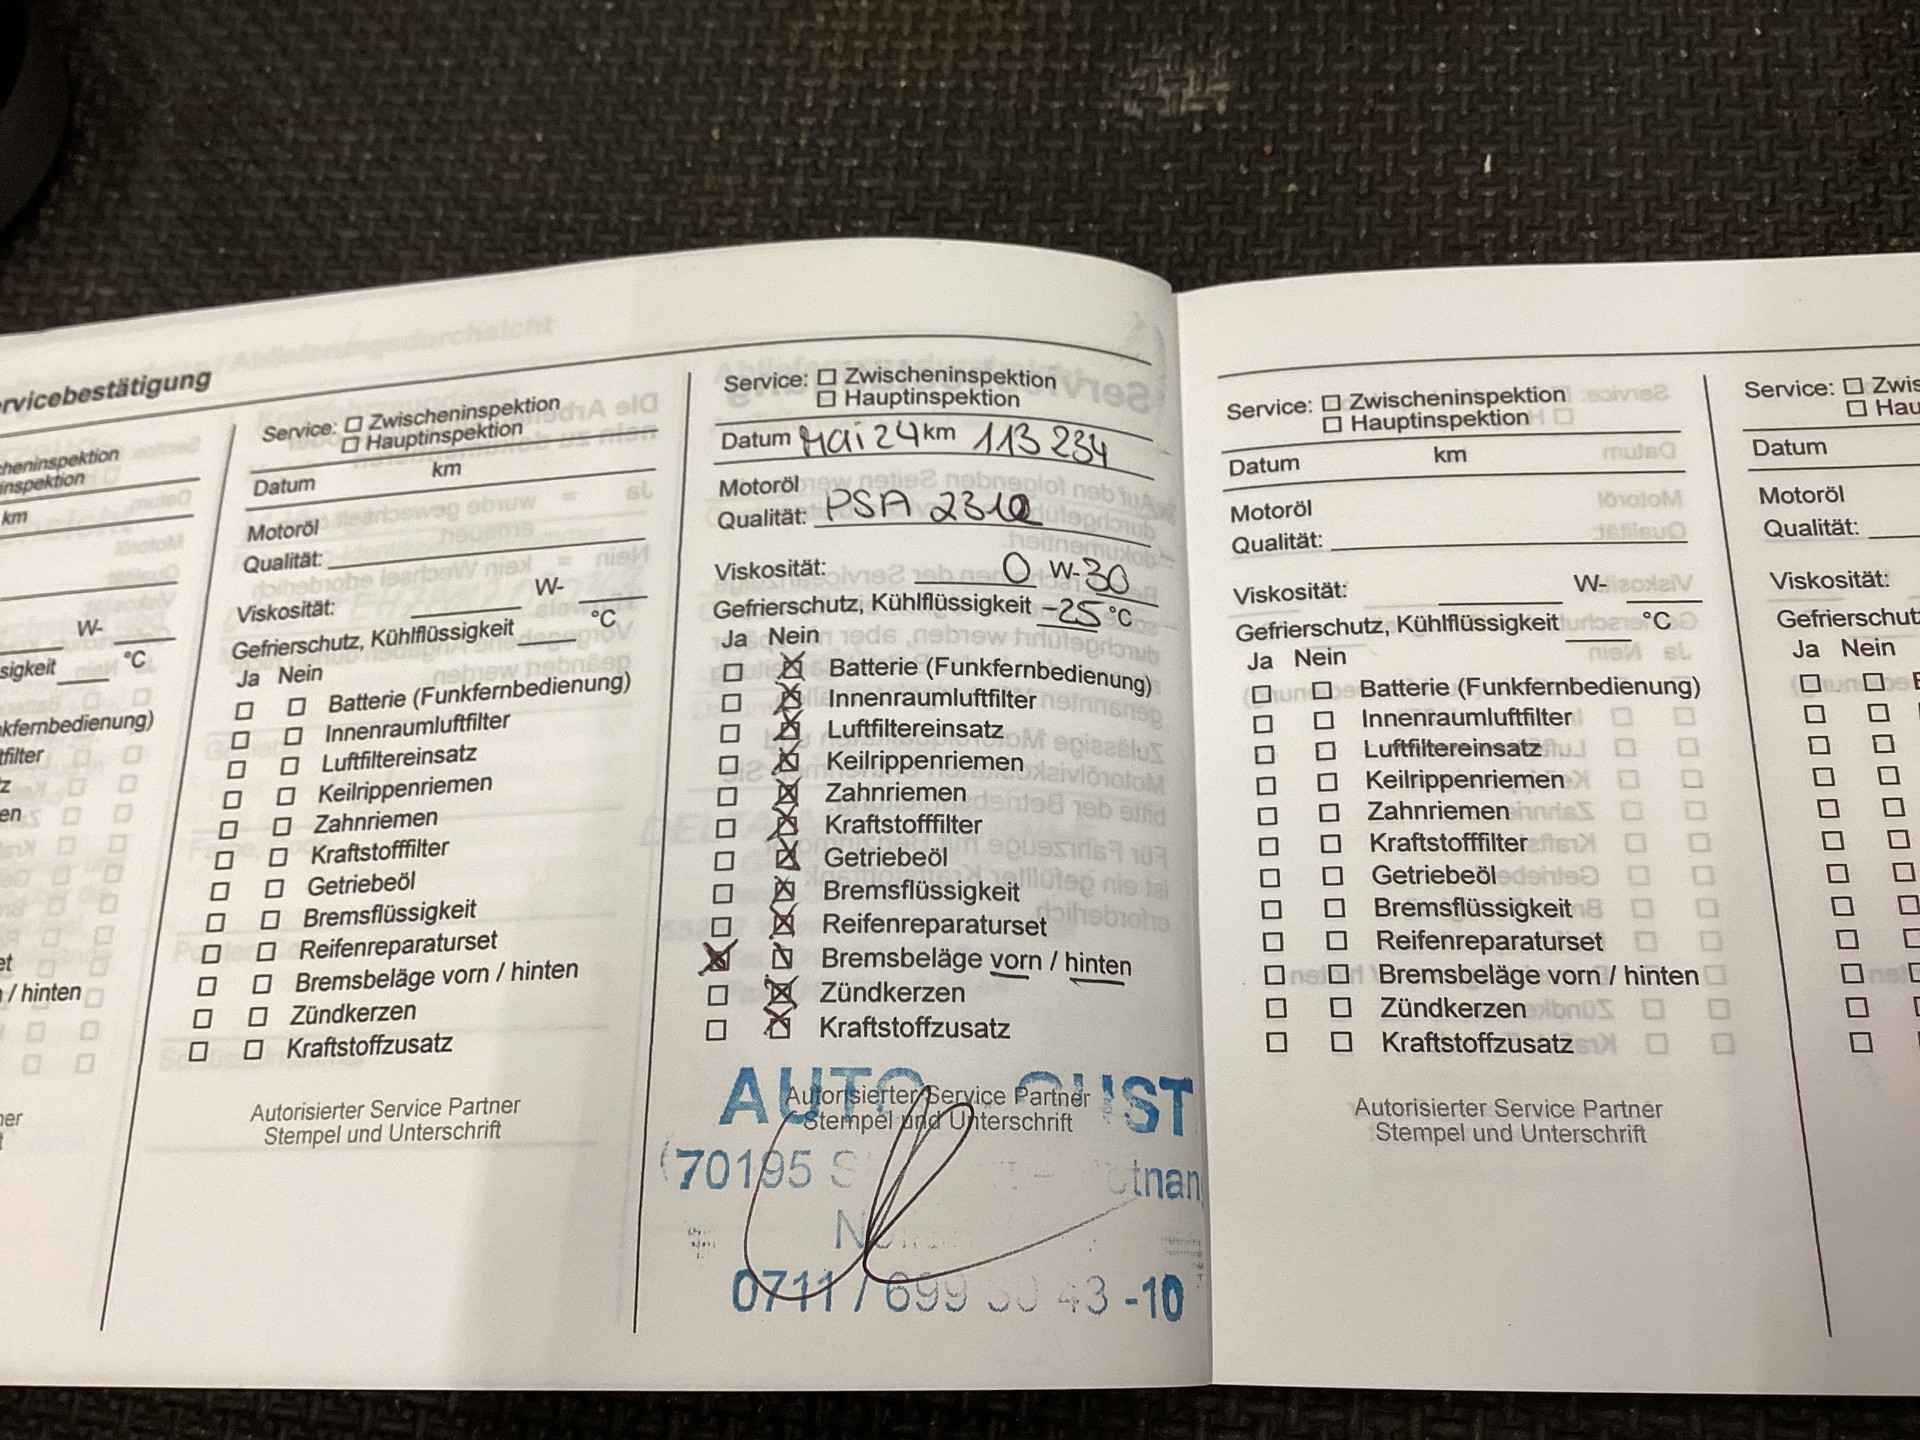 rvicebestätigung
heninspektion
inspektion
km
W-
sigkeit °C
nkfernbedienung)
tfilter
z
en
et
n / hinten
ner
t
Service: Zwischeninspektion
Hauptinspektion
Datum km
Motoröl
Qualität:
Viskosität: W-
Gefrierschutz, Kühlflüssigkeit °C
Ja Nein
Batterie (Funkfernbedienung)
Innenraumluftfilter
Luftfiltereinsatz
Keilrippenriemen
Zahnriemen
Kraftstofffilter
Getriebeöl
Bremsflüssigkeit
Reifenreparaturset
Bremsbeläge vorn / hinten
Zündkerzen
Kraftstoffzusatz
Autorisierter Service Partner
Stempel und Unterschrift
Service: Zwischeninspektion
Hauptinspektion
Datum Mai 24 km 113 234
Motoröl
Qualität: PSA 2312
Viskosität: 0 W-30
Gefrierschutz, Kühlflüssigkeit -25 °C
Ja Nein
Batterie (Funkfernbedienung)
Innenraumluftfilter
Luftfiltereinsatz
Keilrippenriemen
Zahnriemen
Kraftstofffilter
Getriebeöl
Bremsflüssigkeit
Reifenreparaturset
Bremsbeläge vorn / hinten
Zündkerzen
Kraftstoffzusatz
AUTO
Autorisierter Service Partner
Stempel und Unterschrift
70195
0711 / 699 30 43 -10
Service: Zwischeninspektion
Hauptinspektion
Datum km
Motoröl
Qualität:
Viskosität: W-
Gefrierschutz, Kühlflüssigkeit °C
Ja Nein
Batterie (Funkfernbedienung)
Innenraumluftfilter
Luftfiltereinsatz
Keilrippenriemen
Zahnriemen
Kraftstofffilter
Getriebeöl
Bremsflüssigkeit
Reifenreparaturset
Bremsbeläge vorn / hinten
Zündkerzen
Kraftstoffzusatz
Autorisierter Service Partner
Stempel und Unterschrift
Service: Zwis
Hau
Datum
Motoröl
Qualität:
Viskosität:
Gefrierschutz
Ja Nein